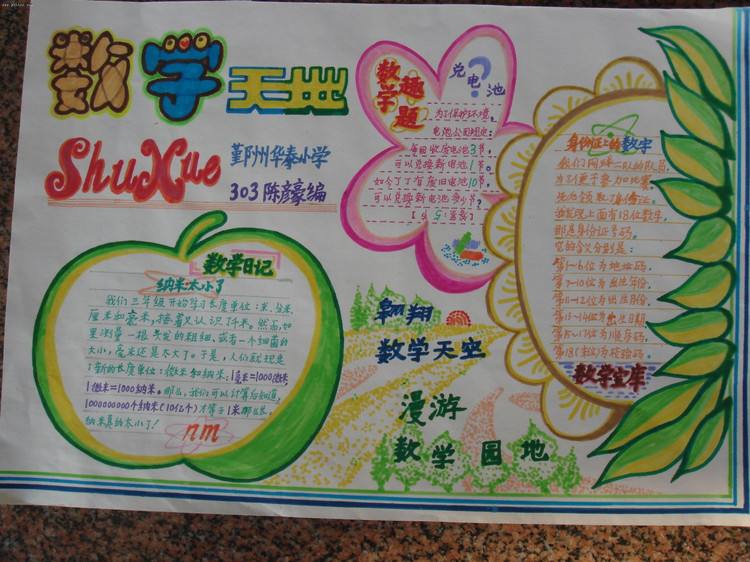 数学天地
ShuXue
鄞州华泰小学
303 陈彦豪编
数学
趣题
兑电池
?
为了保护环境,
电池公司规定:
每回收废电池3节
可以兑换新电池1节。
如今丁丁有废旧电池10节,
可以兑换新电池多少节?
身份证上的数字
我们网球二队的队员
为了便于参加比赛
先后领取了身份证。
我发现上面有18位数字,
那是身份证号码。
它的含义分别是:
第1-6位为地址码,
第7-10位为出生年份,
第11-12位为出生月份,
第13-14位为出生日期,
第15-17位为顺序码,
第18(末)位为校验码。
数学宝库
数学日记
纳米太小了
我们三年级开始学习长度单位:米、分米、
厘米和毫米,接着又认识了千米。然而,如
果测量一根头发的粗细,或者一个细菌的
大小,毫米还是太大了。于是,人们就规定
了新的长度单位:微米和纳米。1毫米=1000微米,
1微米=1000纳米。那么,我们可以计算后知道,
1000000000个纳米(10亿个)才等于1米那么长。
纳米真的太小了!
nm
翱翔
数学天空
漫游
数学园地